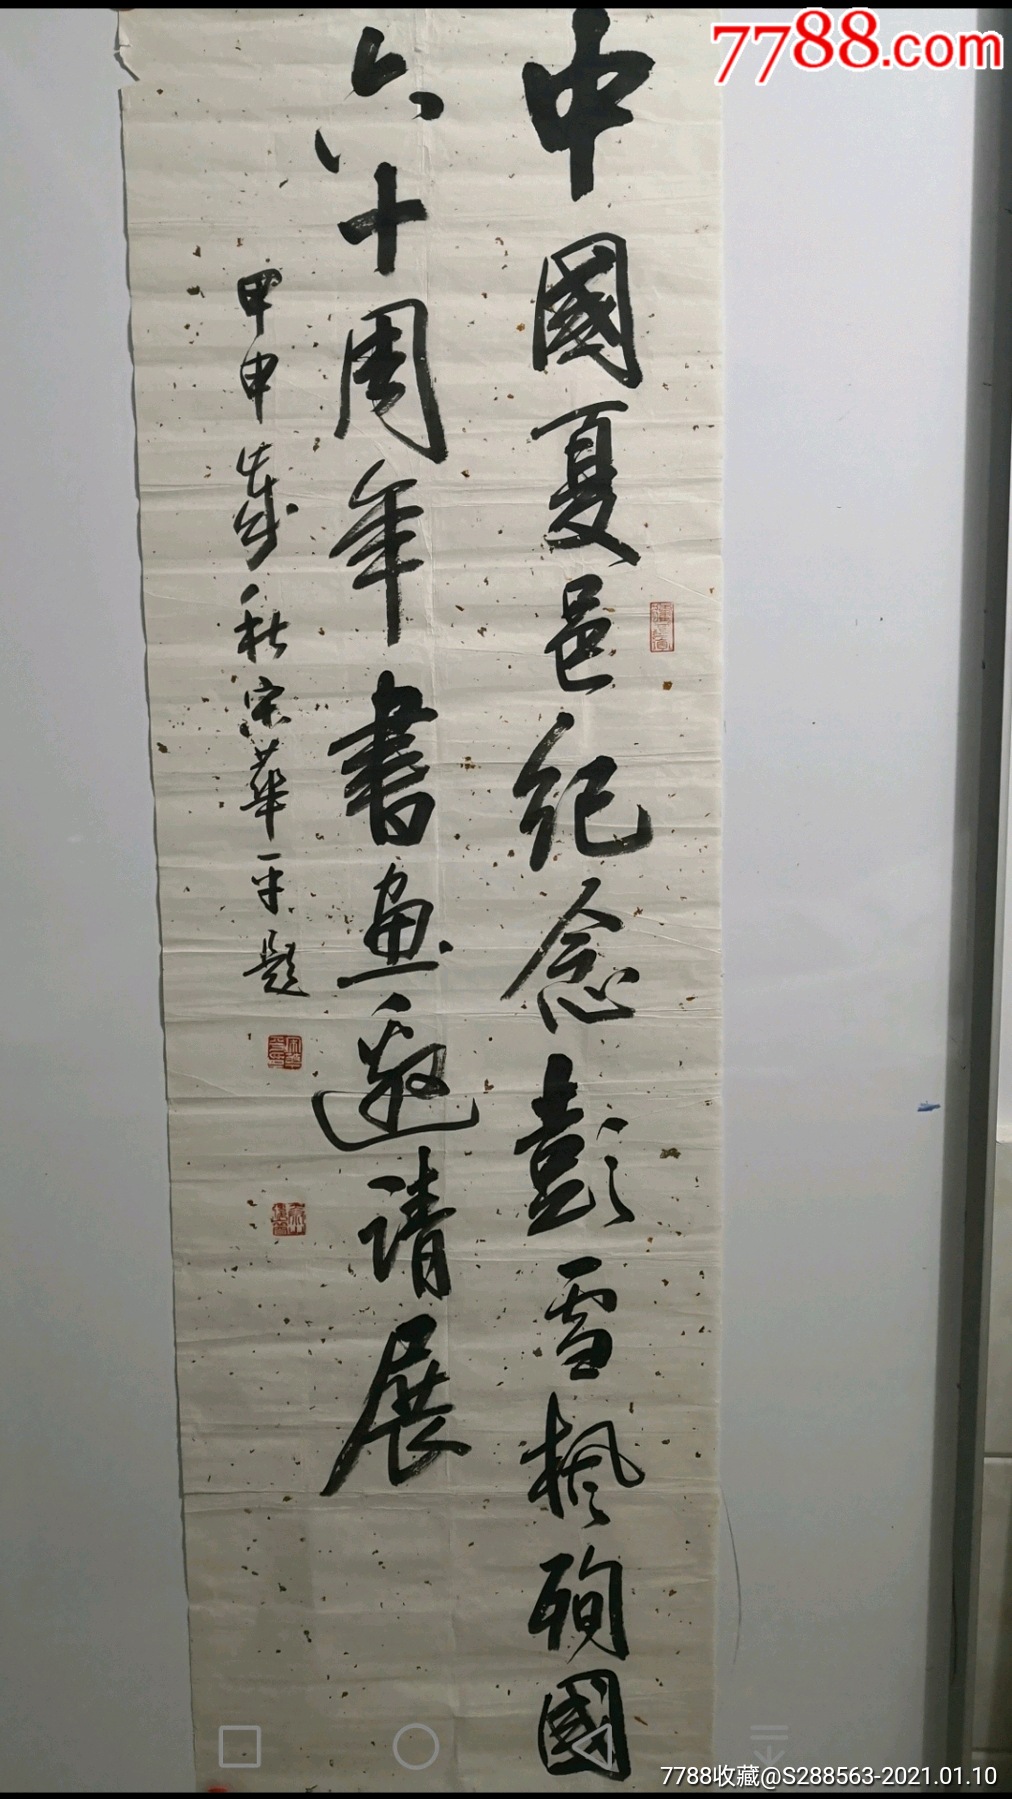 7788.com
中國夏邑纪念彭雪枫殉國
六十周年書画邀请展
甲申岁秋宗華平题
7788收藏@S288563-2021.01.10